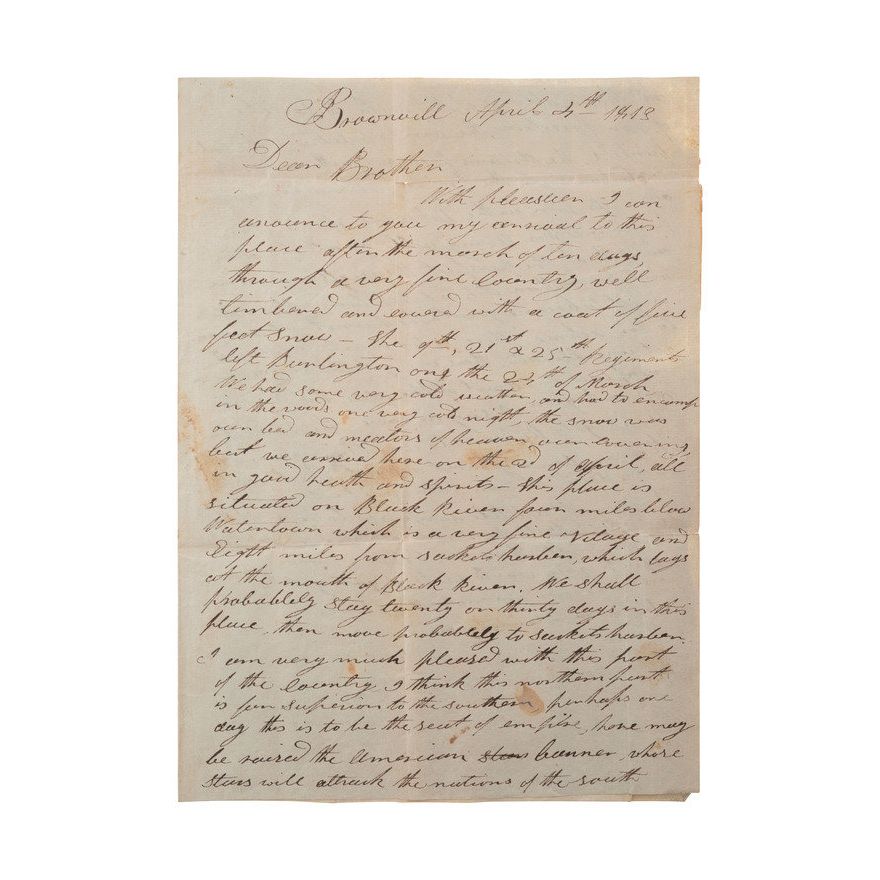 Brownvill April 4th 1813
Dear Brother
With pleasuer I can
anounce to you my arrival to this
place after the march of ten days,
through a very fine Country, well
timbered and covered with a coat of five
feet snow – the 9th, 21st & 25th Regiments
left Burlington ong the 24th of March
We had some very cold weather, and had to encamp
in the woods one very cold night, the snow was
ouer bed and meators of heaven ouer covering
but we arrived here on the 2d of April, all
in good health and spirits – this place is
situated on Black River four miles blow
Watertown which is a very fine village and
Eight miles from Sackets harber, which lays
at the mouth of Black River. We shall
probablely stay twenty or thirty days in this
place, then move probablely to Sackets harber.
I am very much pleased with this part
of the Country I think this northern part
is fur superior to the southern, perhaps one
day this is to be the seat of empire, here may
be raised the american stars banner, whose
stars will attrack the nations of the south